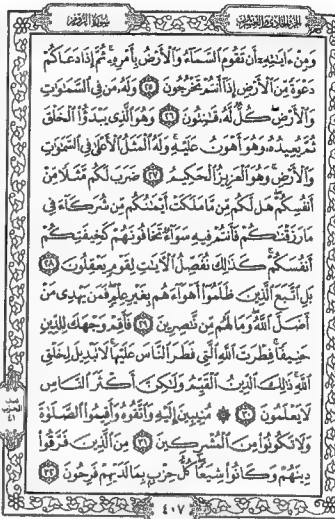 الجزء الحادي والعشرون
سورة الروم
وَمِنْ ءَايَٰتِهِۦٓ أَن تَقُومَ ٱلسَّمَآءُ وَٱلْأَرْضُ بِأَمْرِهِۦ ۚ ثُمَّ إِذَا دَعَاكُمْ
دَعْوَةً مِّنَ ٱلْأَرْضِ إِذَآ أَنتُمْ تَخْرُجُونَ ٢٥ وَلَهُۥ مَن فِى ٱلسَّمَٰوَٰتِ
وَٱلْأَرْضِ ۖ كُلٌّ لَّهُۥ قَٰنِتُونَ ٢٦ وَهُوَ ٱلَّذِى يَبْدَؤُا۟ ٱلْخَلْقَ
ثُمَّ يُعِيدُهُۥ وَهُوَ أَهْوَنُ عَلَيْهِ ۚ وَلَهُ ٱلْمَثَلُ ٱلْأَعْلَىٰ فِى ٱلسَّمَٰوَٰتِ
وَٱلْأَرْضِ ۚ وَهُوَ ٱلْعَزِيزُ ٱلْحَكِيمُ ٢٧ ضَرَبَ لَكُم مَّثَلًا مِّنْ
أَنفُسِكُمْ ۖ هَل لَّكُم مِّن مَّا مَلَكَتْ أَيْمَٰنُكُم مِّن شُرَكَآءَ فِى
مَا رَزَقْنَٰكُمْ فَأَنتُمْ فِيهِ سَوَآءٌ تَخَافُونَهُمْ كَخِيفَتِكُمْ
أَنفُسَكُمْ ۚ كَذَٰلِكَ نُفَصِّلُ ٱلْءَايَٰتِ لِقَوْمٍ يَعْقِلُونَ ٢٨
بَلِ ٱتَّبَعَ ٱلَّذِينَ ظَلَمُوٓا۟ أَهْوَآءَهُم بِغَيْرِ عِلْمٍ ۖ فَمَن يَهْدِى مَنْ
أَضَلَّ ٱللَّهُ ۖ وَمَا لَهُم مِّن نَّٰصِرِينَ ٢٩ فَأَقِمْ وَجْهَكَ لِلدِّينِ
حَنِيفًا ۚ فِطْرَتَ ٱللَّهِ ٱلَّتِى فَطَرَ ٱلنَّاسَ عَلَيْهَا ۚ لَا تَبْدِيلَ لِخَلْقِ
ٱللَّهِ ۚ ذَٰلِكَ ٱلدِّينُ ٱلْقَيِّمُ وَلَٰكِنَّ أَكْثَرَ ٱلنَّاسِ
لَا يَعْلَمُونَ ٣٠ ۞ مُنِيبِينَ إِلَيْهِ وَٱتَّقُوهُ وَأَقِيمُوا۟ ٱلصَّلَوٰةَ
وَلَا تَكُونُوا۟ مِنَ ٱلْمُشْرِكِينَ ٣١ مِنَ ٱلَّذِينَ فَرَّقُوا۟
دِينَهُمْ وَكَانُوا۟ شِيَعًا ۖ كُلُّ حِزْبٍۭ بِمَا لَدَيْهِمْ فَرِحُونَ ٣٢
٤٠٧